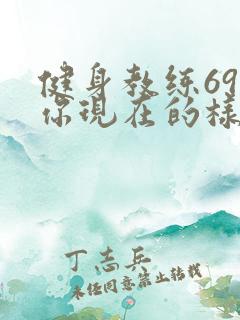 健身教练69
你现在的样
丁志兵
未经同意禁止转载